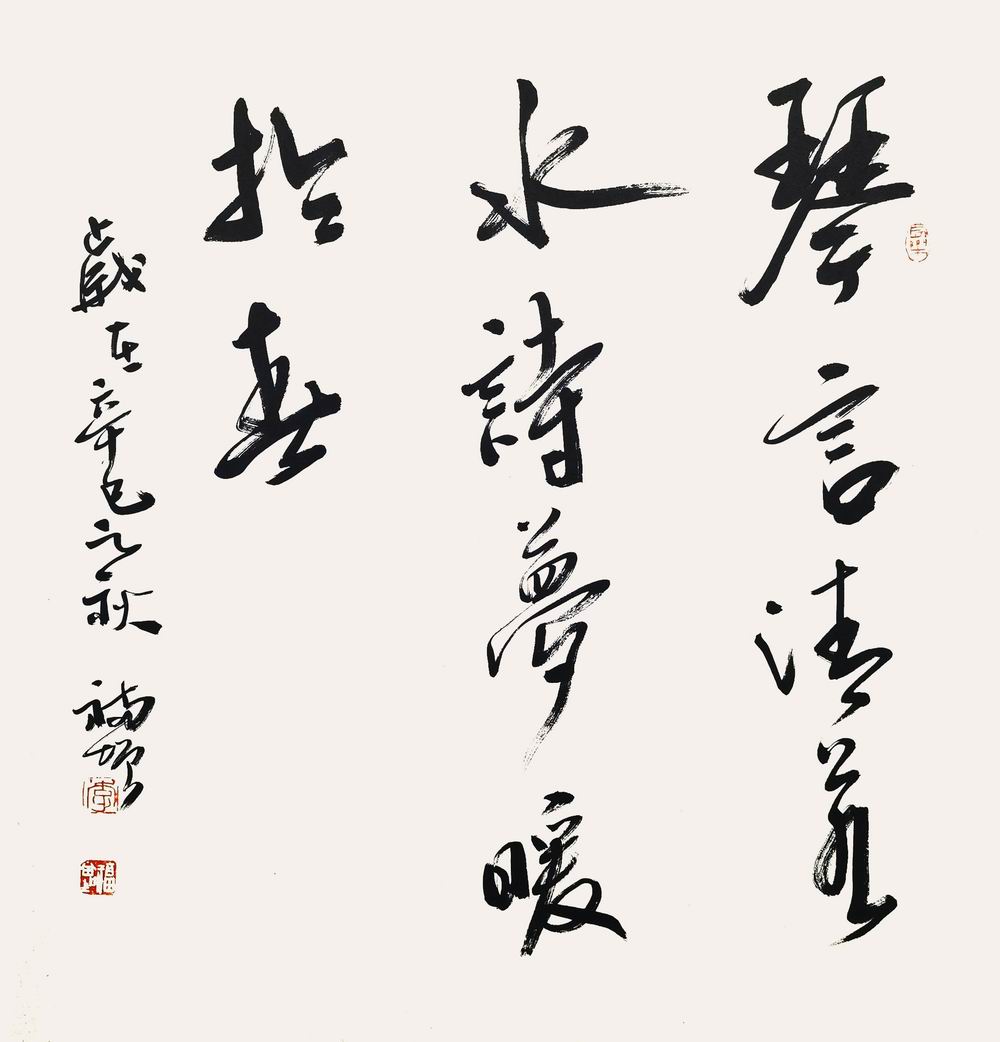 琴言清若
水詩夢暖
於春
歲在辛巳之秋 福增